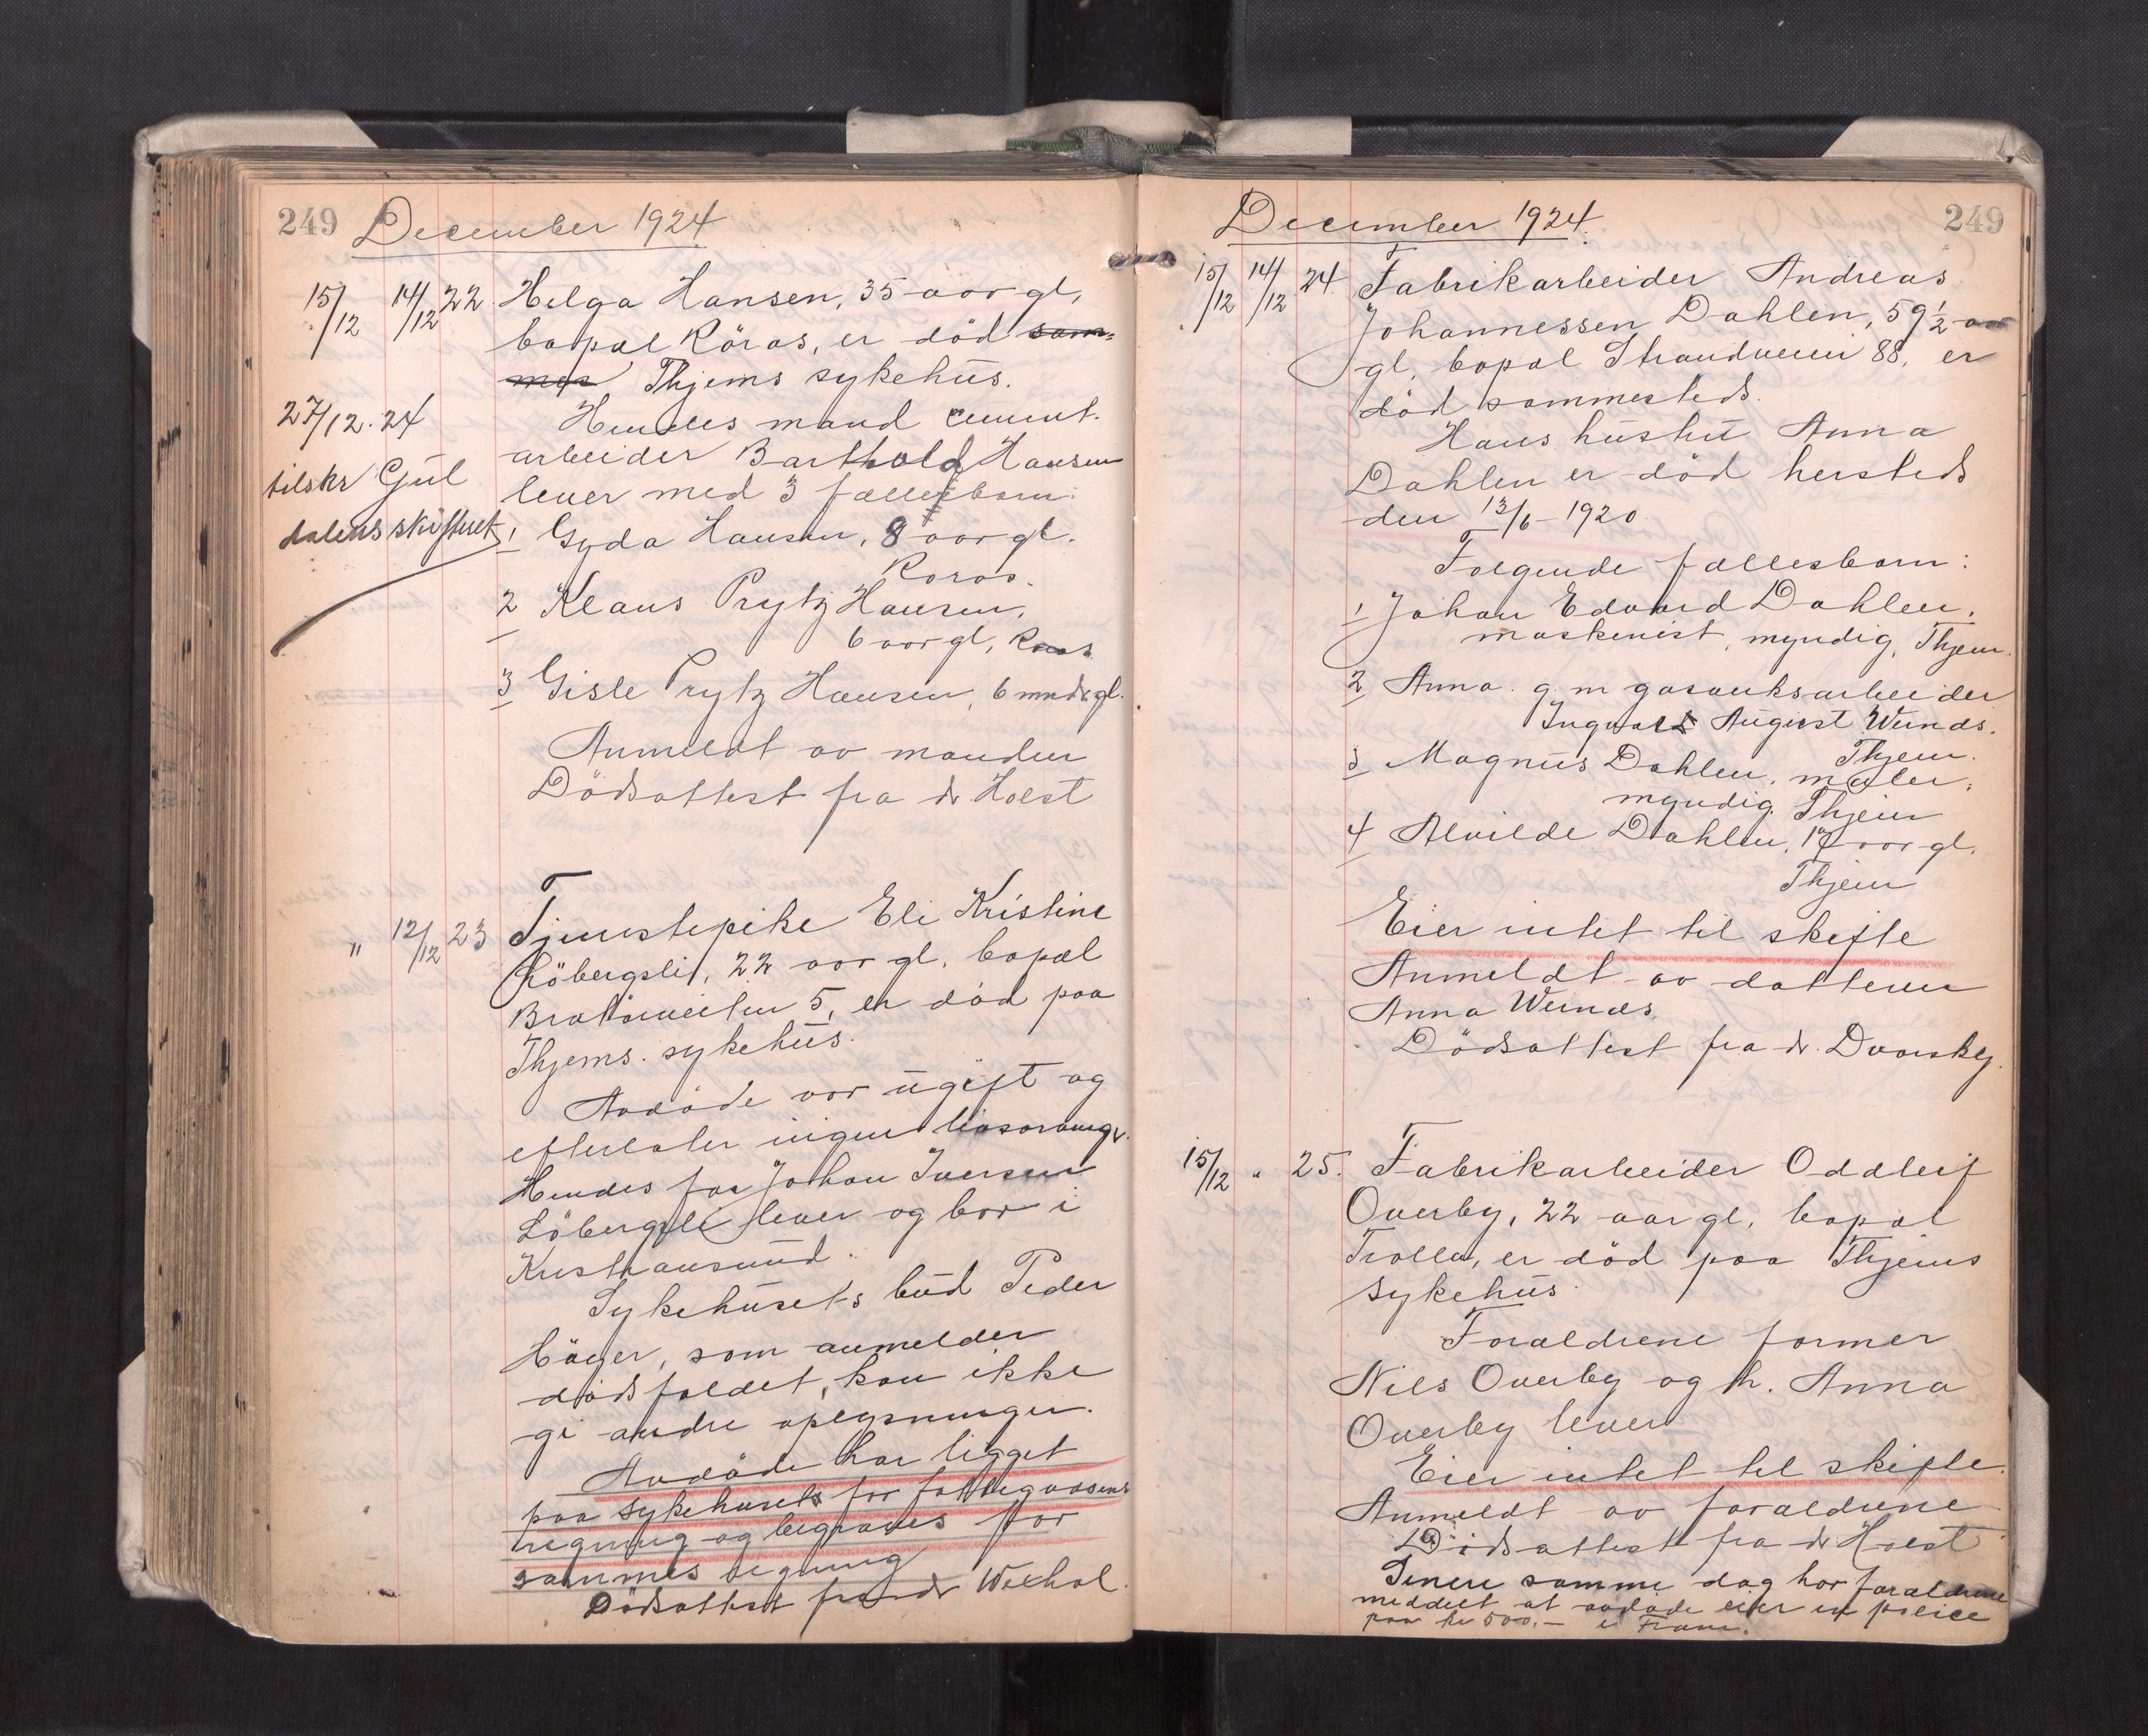 249 December 1924
15/12 14/12 22 Helga Hansen, 35 aar gl,
bopæl Röros, er död sam=
mes Thjems sykehus.
27/12.24
Hendes mand cement.
arbeider Barthold Hansen
tilskr Gul
lever med 3 fællesbarn:
dalens skifteret
1 Gyda Hansen, 8 aar gl.
Röros.
2 Klaus Prytz Hansen,
6 aar gl, Röros
3 Gisle Prytz Hansen, 6 mndr gl.
Anmeldt av manden
Dödsattest fra dr Holst
" 12/12 23 Tjenestepike Eli Kristine
Löbergsli, 22 aar gl. bopæl
Bratörveiten 5, er död paa
Thjems. sykehus.
Avdöde var ugift og
efterlater ingen livsarving.
Hendes far Johan Iversen
Löbergsli lever og bor i
Kristiansund.
Sykehusets bud Peder
Höyer, som anmelder
dödsfaldet, kan ikke
gi andre oplysninger.
Avdöde har ligget
paa sykehusets for fattigvæsenets
regning og begraves for
sammes regning
Dödsattest fra dr Wexhal.
December 1924. 249
15/12 14/12 24 Fabrikarbeider Andreas
Johannessen Dahlen, 59 1/2 aar
gl, bopæl Strandveien 88, er
död sammesteds.
Hans hustru Anna
Dahlen er död hersteds
den 13/6-1920
Følgende fællesbarn:
1 Johan Edvard Dahlen,
maskinist, myndig, Thjem.
2 Anna. g. m gasverksarbeider
Ingvald August Wernæs.
Thjem.
3 Magnus Dahlen, maler,
myndig. Thjem
4 Alvilde Dahlen, 17 aar gl.
Thjem
Eier intet til skifte
Anmeldt av datteren
Anna Wernæs.
Dödsattest fra dr. Dvorsky.
15/12 " 25. Fabrikarbeider Oddleif
Overby, 22 aar gl, bopæl
Trolla, er död paa Thjems
sykehus.
Forældrene former
Nils Overby og h. Anna
Overby lever
Eier intet til skifte.
Anmeldt av forældrene
Dödsattest fra dr Holst.
Senere samme dag har forældrene
meddelt at avdöde eier en police
paa kr 500,- i Fram.